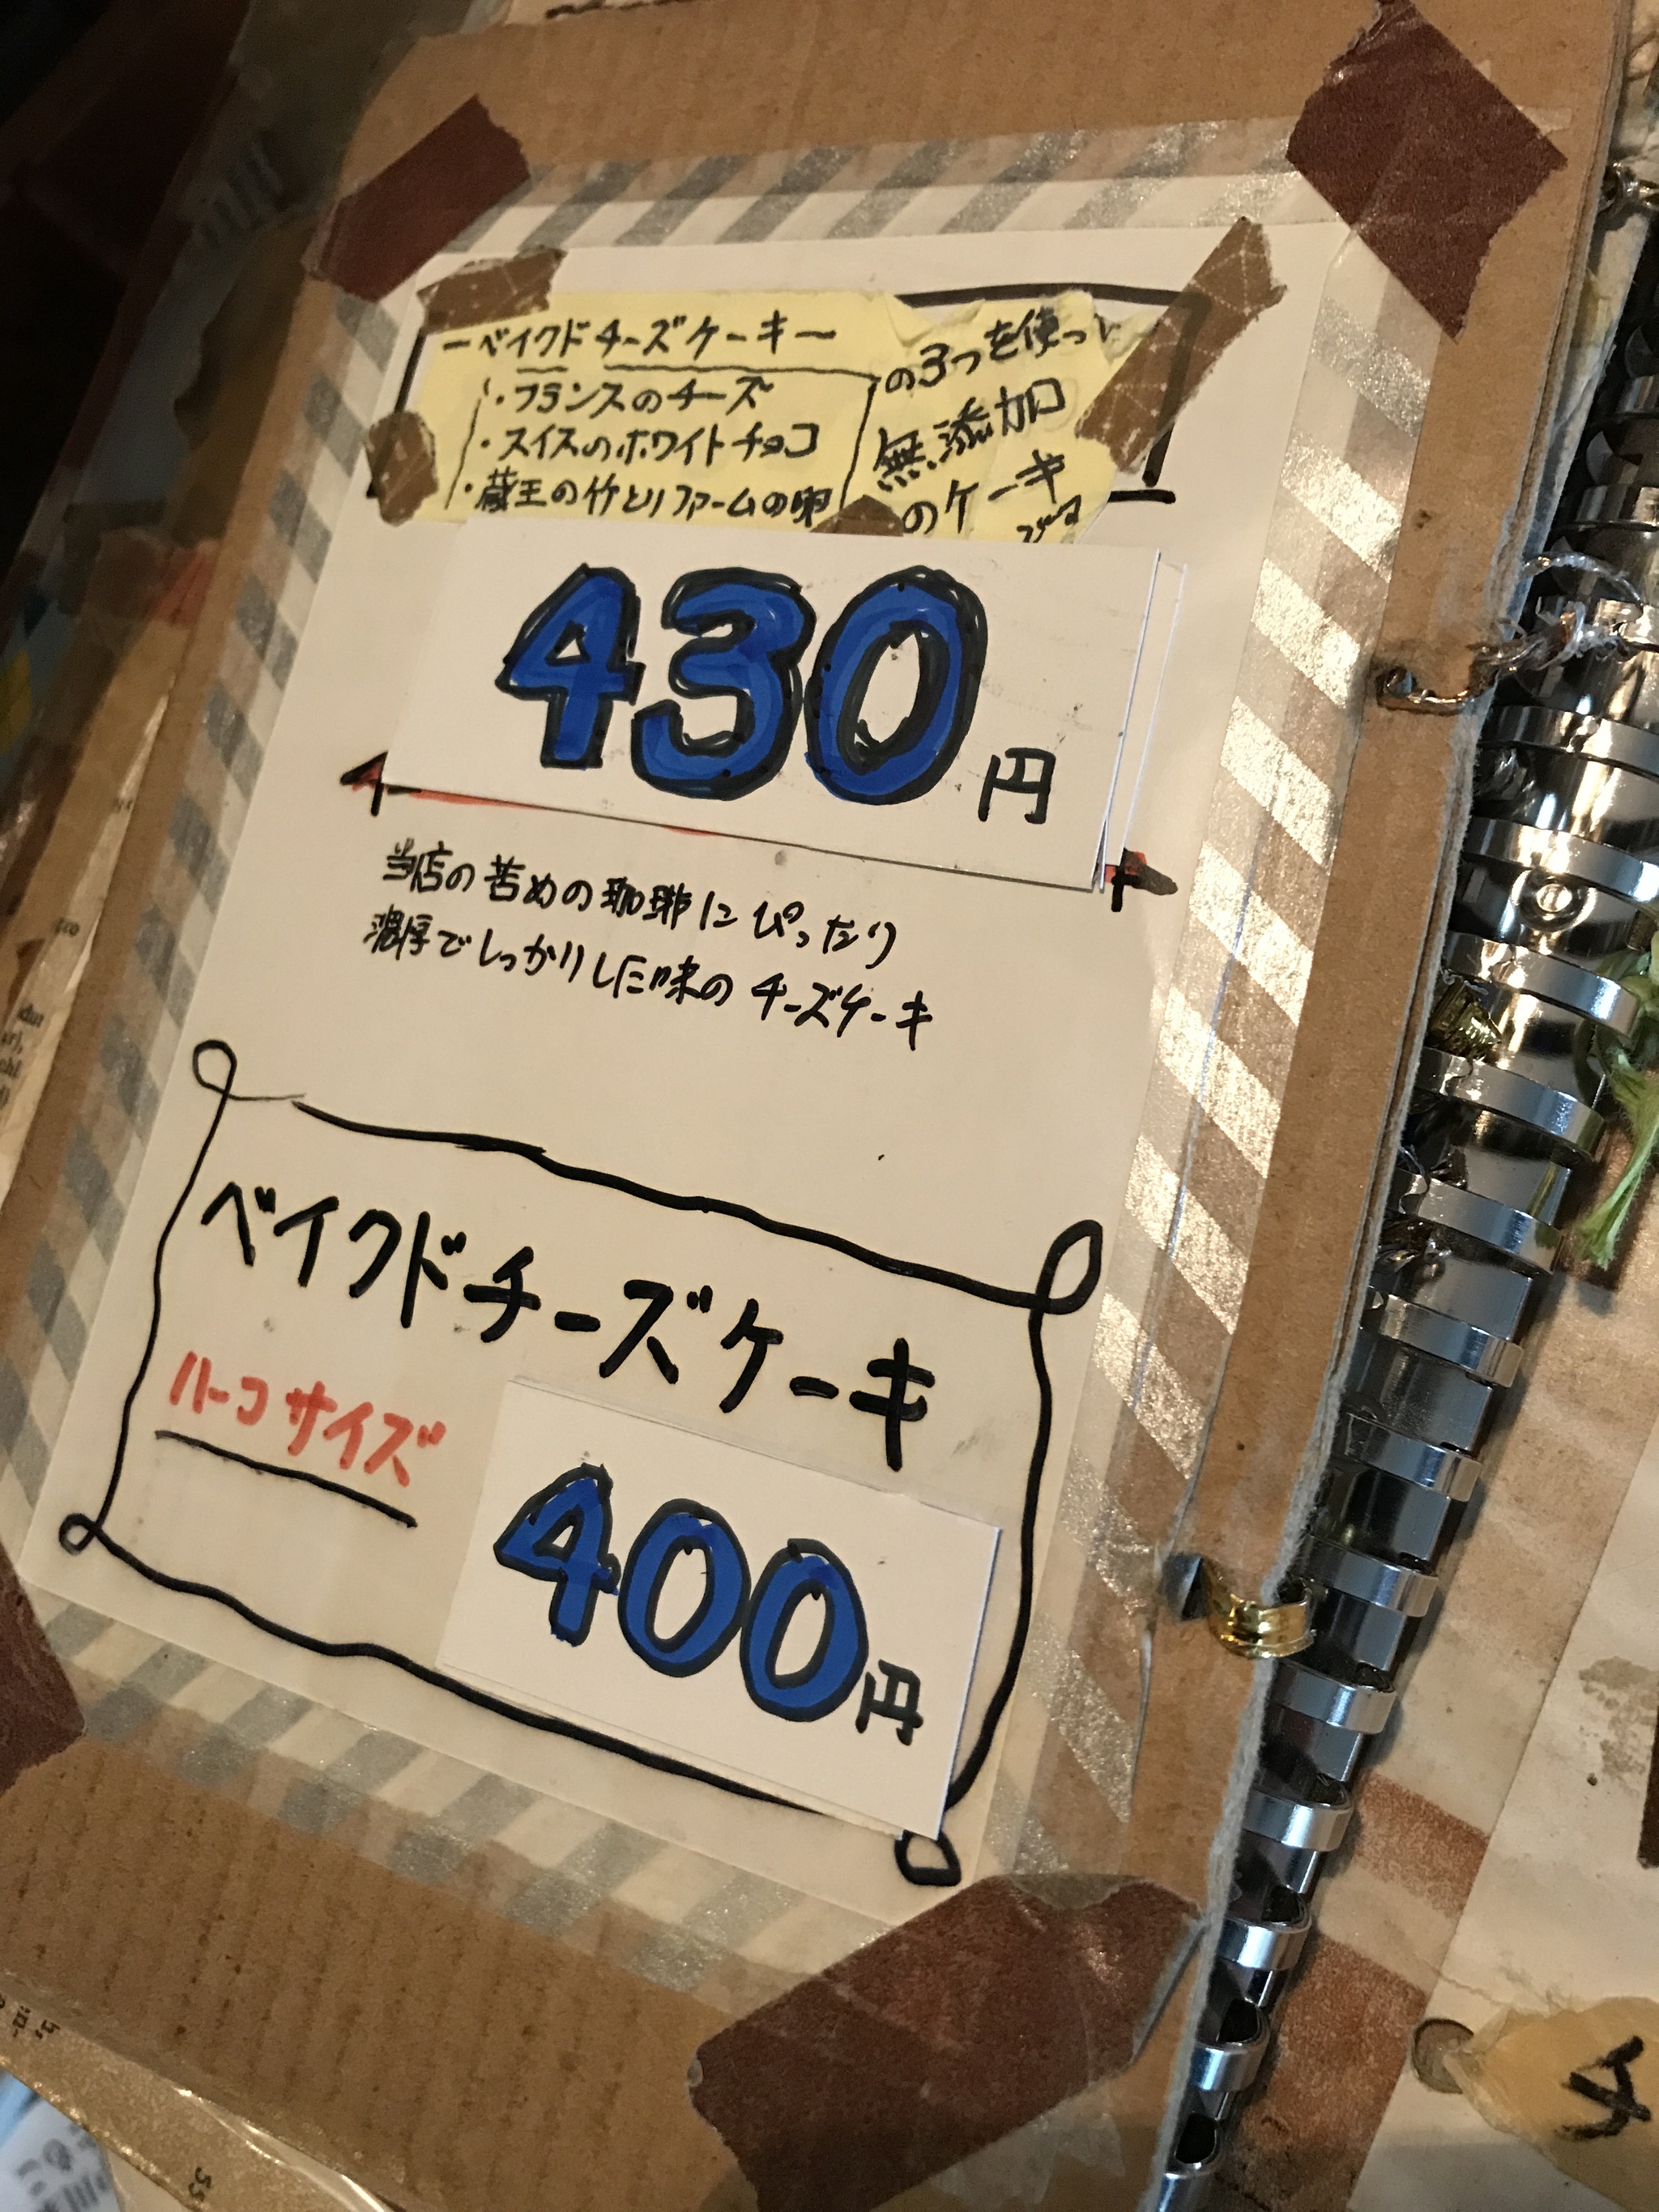 ーベイクドチーズケーキー
・フランスのチーズ
・スイスのホワイトチョコ
・蔵王の竹とりファームの卵
の3つを使っ
無添加
のケーキ
です
430円
当店の苦めの珈琲にぴったり
濃厚でしっかりした味のチーズケーキ
ベイクドチーズケーキ
ハーコサイズ
400円
チ